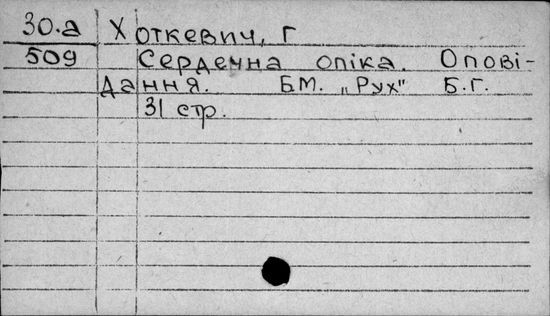 30.а Хоткевич, Г
509 Сердечна опіка. Опові-
дання. БМ. „Рух" Б.Г.
31 стр.